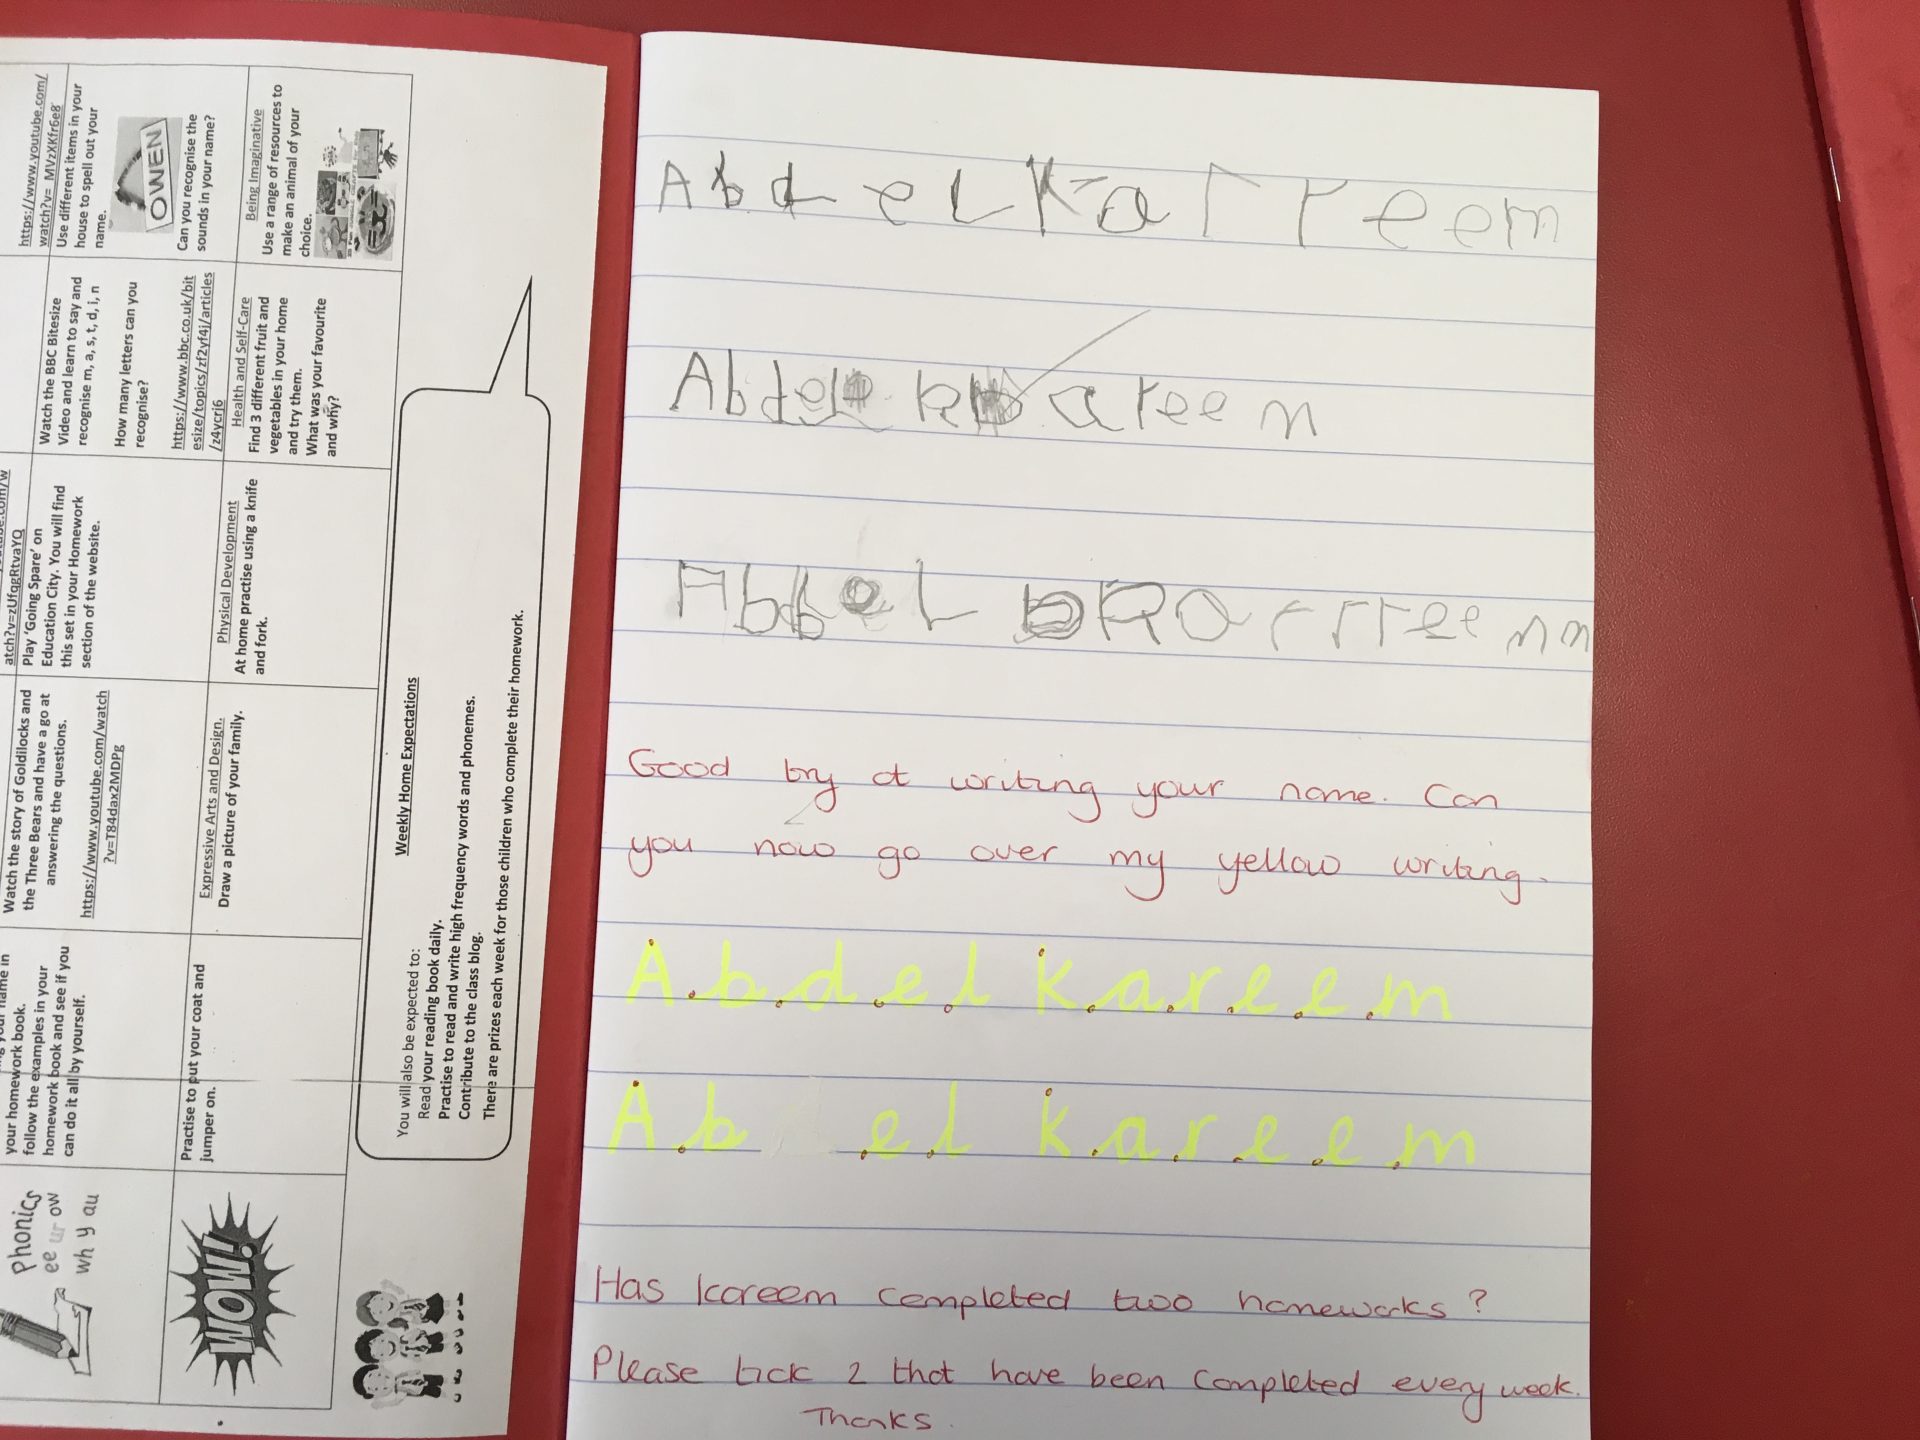 https://www.youtube.com/
watch?v=_MVzXKfr6e8
Use different items in your
house to spell out your
name.
OWEN
Can you recognise the
sounds in your name?
Being Imaginative
Use a range of resources to
make an animal of your
choice.
Watch the BBC Bitesize
Video and learn to say and
recognise m, a, s, t, d, i, n
How many letters can you
recognise?
https://www.bbc.co.uk/bit
esize/topics/zf2yf4j/articles
/z4ycrj6
Health and Self-Care
Find 3 different fruit and
vegetables in your home
and try them.
What was your favourite
and why?
atch?v=zUfqgRtvaYQ
Play 'Going Spare' on
Education City. You will find
this set in your Homework
section of the website.
Physical Development
At home practise using a knife
and fork.
Watch the story of Goldilocks and
the Three Bears and have a go at
answering the questions.
https://www.youtube.com/watch
?v=T84dax2MDPg
Expressive Arts and Design.
Draw a picture of your family.
your homework book.
follow the examples in your
homework book and see if you
can do it all by yourself.
Practise to put your coat and
jumper on.
Phonics
ee ur ow
wh y au
WOW!
Weekly Home Expectations
You will also be expected to:
Read your reading book daily.
Practise to read and write high frequency words and phonemes.
Contribute to the class blog.
There are prizes each week for those children who complete their homework.
Abdelkarreem
Abdel kareem
Good try at writing your name. Can
you now go over my yellow writing.
Abdel kareem
Ab el kareem
Has Kareem completed two homeworks?
Please tick 2 that have been completed every week.
Thanks.